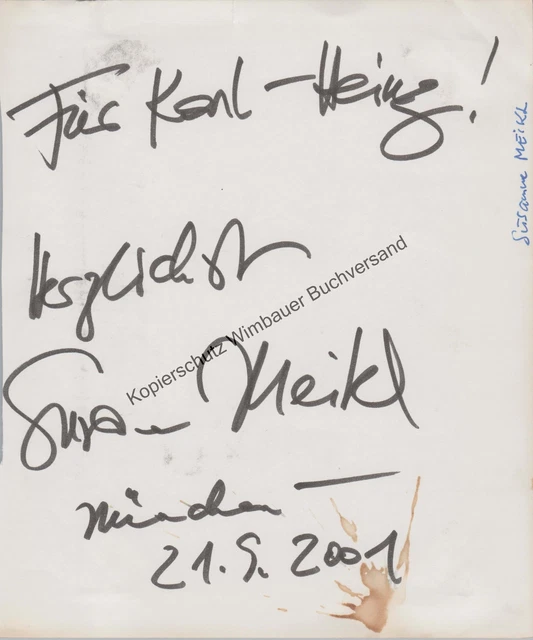 Für Karl-Heinz!
Susanne MEIKL
Herzlichst
Kopierschutz Wimbauer Buchversand
Susanne Meikl
München —
21.9.2001